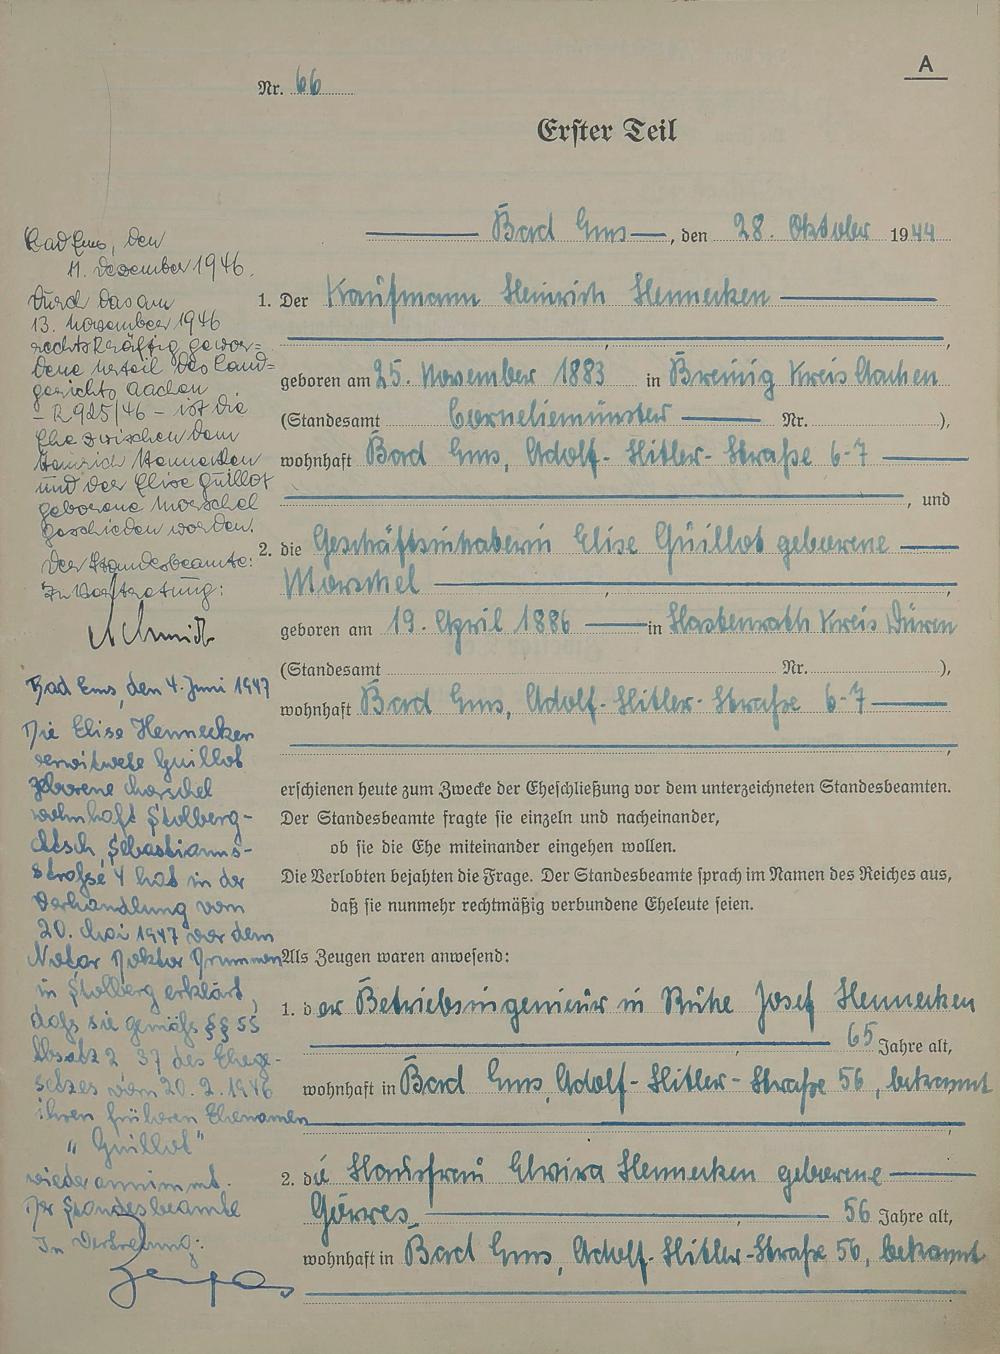 A
Nr. 66
Erster Teil
Bad Ems, den 28. Oktober 1944
1. Der Kaufmann Heinrich Hennecken
geboren am 25. November 1883 in Breinig Kreis Aachen
(Standesamt Corneliemünster Nr. ),
wohnhaft Bad Ems, Adolf-Hitler-Straße 6-7
, und
2. die Geschäftsinhaberin Elise Guillot geborene
Morschel
geboren am 19. April 1886 in Hastenrath Kreis Düren
(Standesamt Nr. ),
wohnhaft Bad Ems, Adolf-Hitler-Straße 6-7
erschienen heute zum Zwecke der Eheschließung vor dem unterzeichneten Standesbeamten.
Der Standesbeamte fragte sie einzeln und nacheinander,
ob sie die Ehe miteinander eingehen wollen.
Die Verlobten bejahten die Frage. Der Standesbeamte sprach im Namen des Reiches aus,
daß sie nunmehr rechtmäßig verbundene Eheleute seien.
Als Zeugen waren anwesend:
1. der Betriebsingenieur in Ruhe Josef Hennecken
65 Jahre alt,
wohnhaft in Bad Ems, Adolf-Hitler-Straße 56, bekannt
2. die Hausfrau Elvira Hennecken geborene
Görres 56 Jahre alt,
wohnhaft in Bad Ems, Adolf-Hitler-Straße 56, bekannt
Bad Ems, den
11. Dezember 1946.
Durch das am
13. November 1946
rechtskräftig gewor=
dene Urteil des Land=
gerichts Aachen
– R 925/46 – ist die
Ehe zwischen dem
Heinrich Hennecken
und der Elise Guillot
geborene Morschel
geschieden worden.
Der Standesbeamte:
In Vertretung:
Schmidt
Bad Ems, den 4. Juni 1947
Die Elise Hennecken
verwitwete Guillot
geborene Morschel
wohnhaft Stolberg-
Atsch, Sebastianus-
straße 4 hat in der
Verhandlung vom
20. Mai 1947 vor dem
Notar Doktor
in Stolberg erklärt,
daß sie gemäß §§ 55
Absatz 2, 57 des Ehege-
setzes vom 20. 2. 1946
ihren früheren Ehenamen
"Guillot"
wieder annimmt.
Der Standesbeamte
In Vertretung: